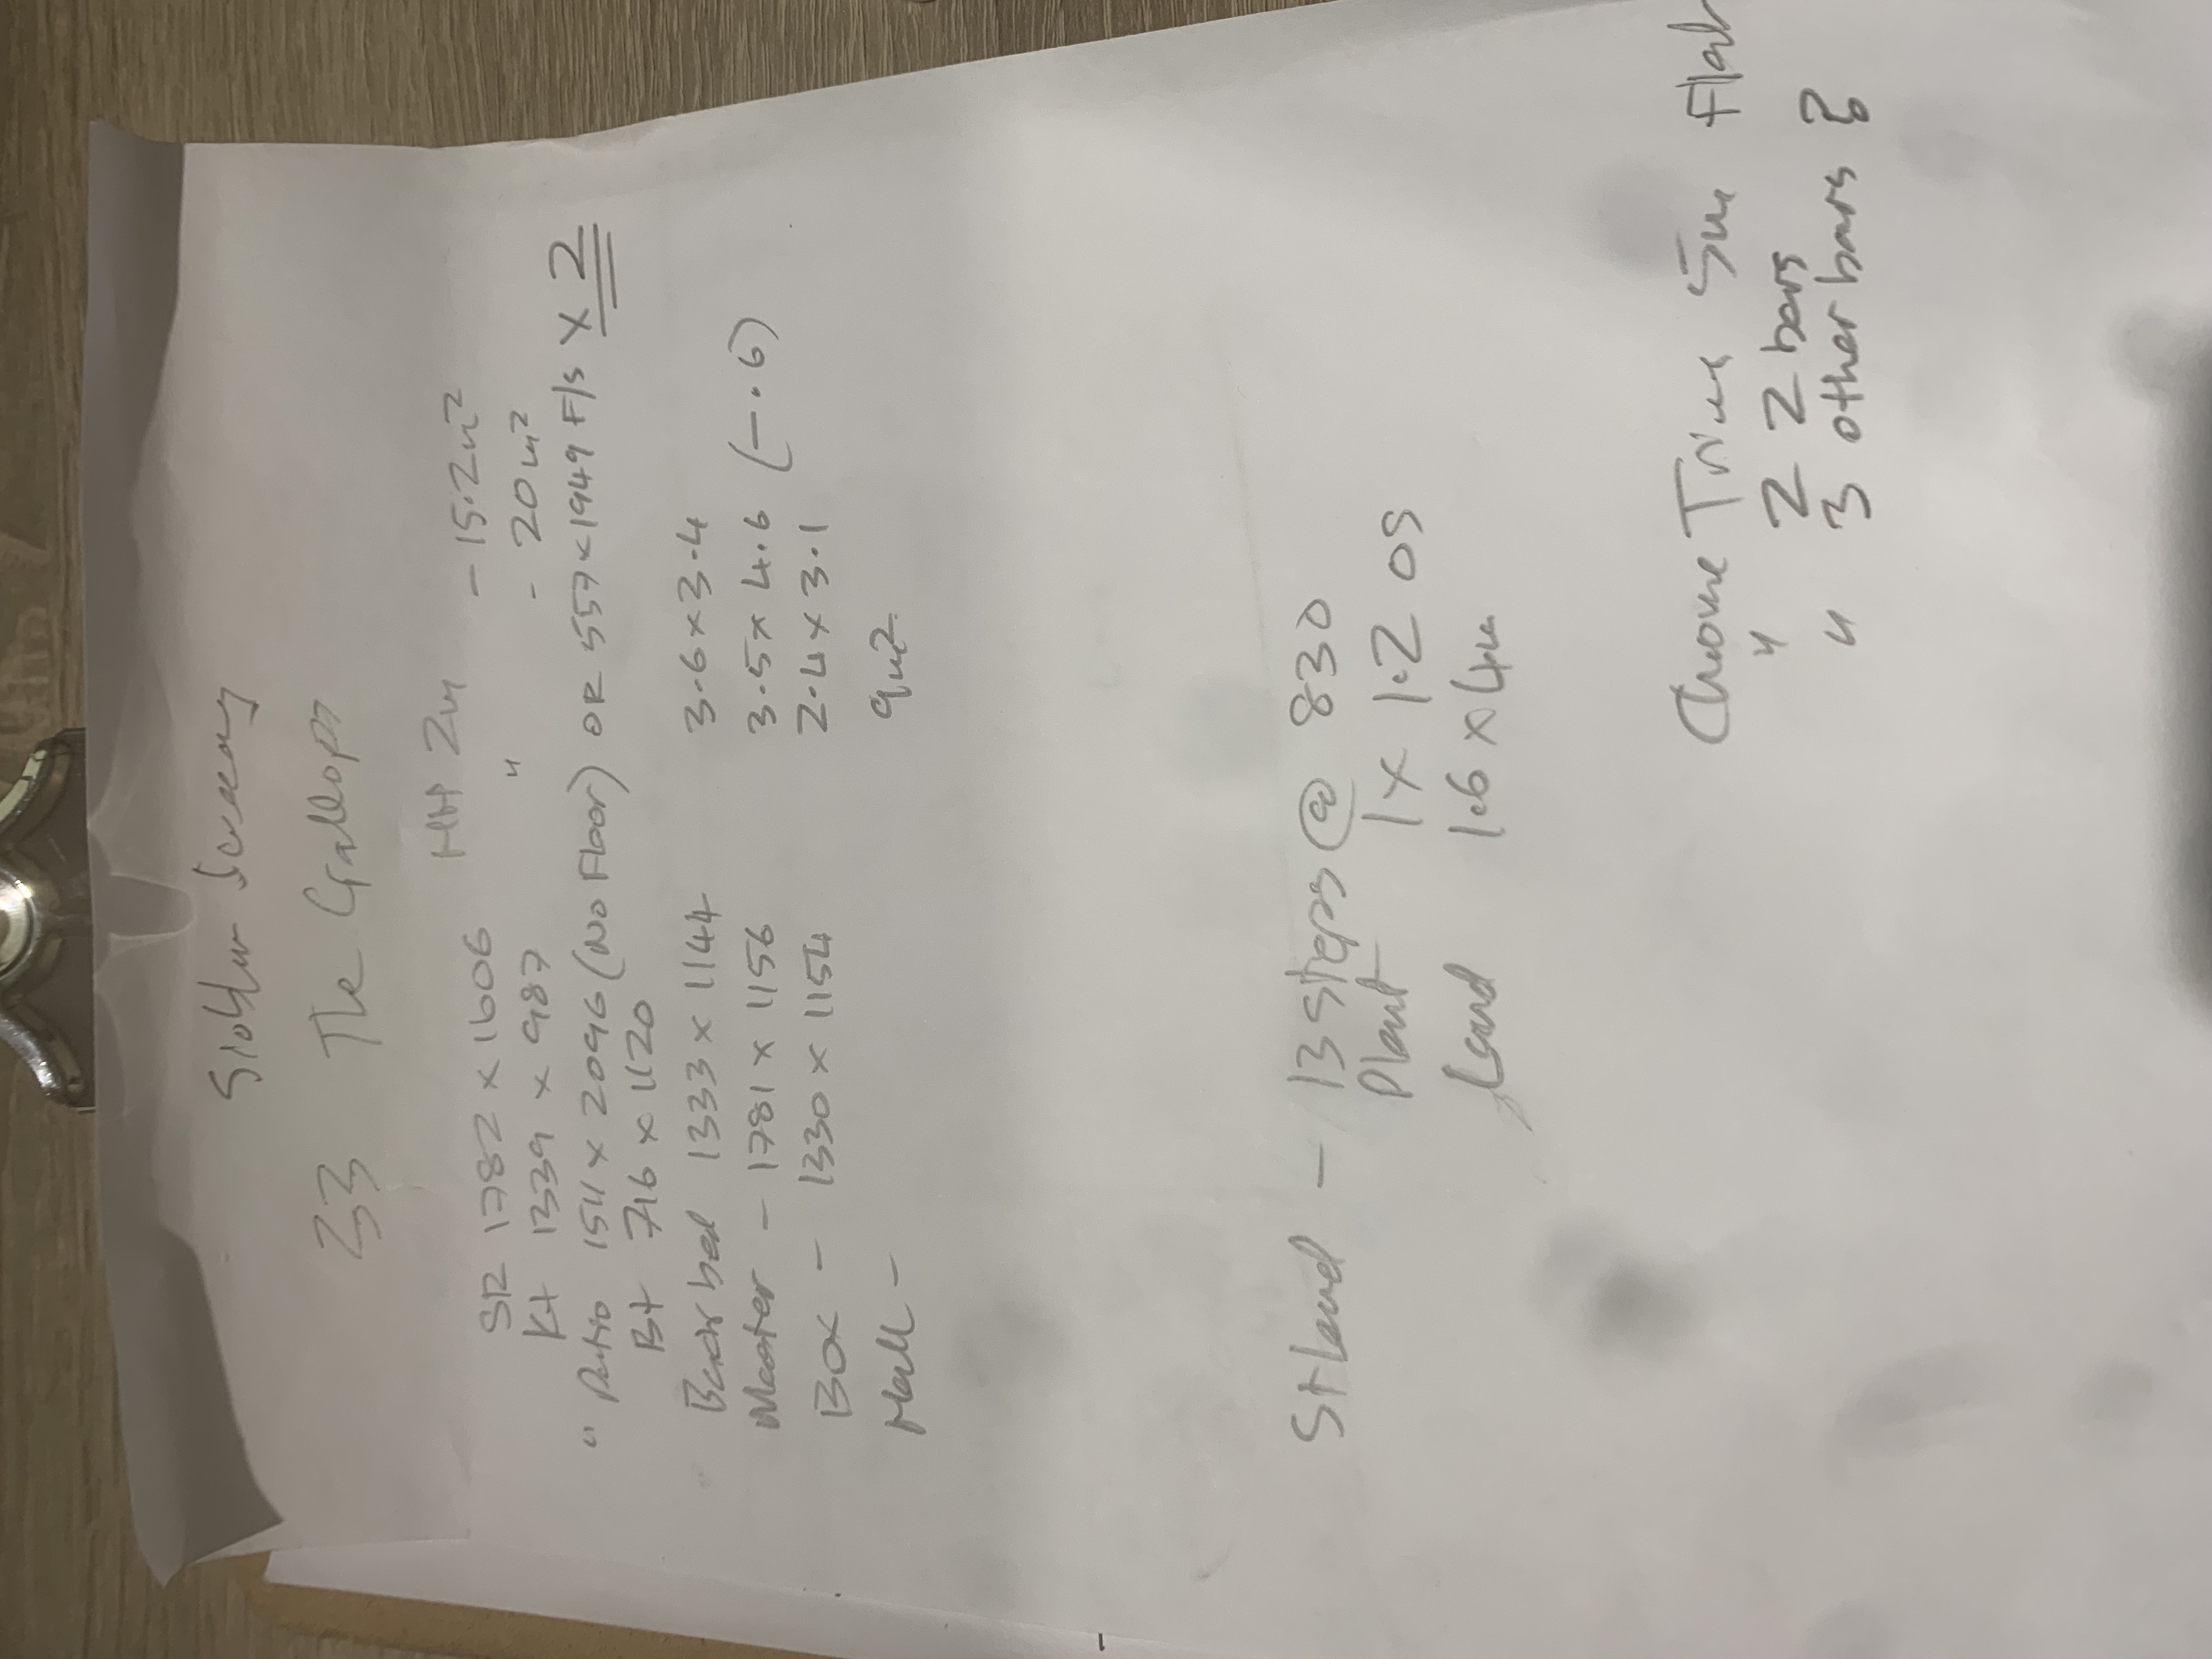 23 The Gallops
HH 2m - 15.2m²
SR 1782 x 1606
Kt 1339 x 987 " - 20m²
" Patio 1511 x 2096 (No Floor) OR 557 x 1949 F/s x 2
Bt 716 x 1120
Back bed 1333 x 1144 3.6 x 3.4
Master - 1781 x 1156 3.5 x 4.6 (-.6)
Box - 1330 x 1154 2.4 x 3.1
Hall - 9m2
St Land - 13 Steps @ 830
Plant 1 x 1.2 OS
Land 1.6 x 4m
Chrome Trims 5m Flat
" 2 2 bars
" 3 other bars